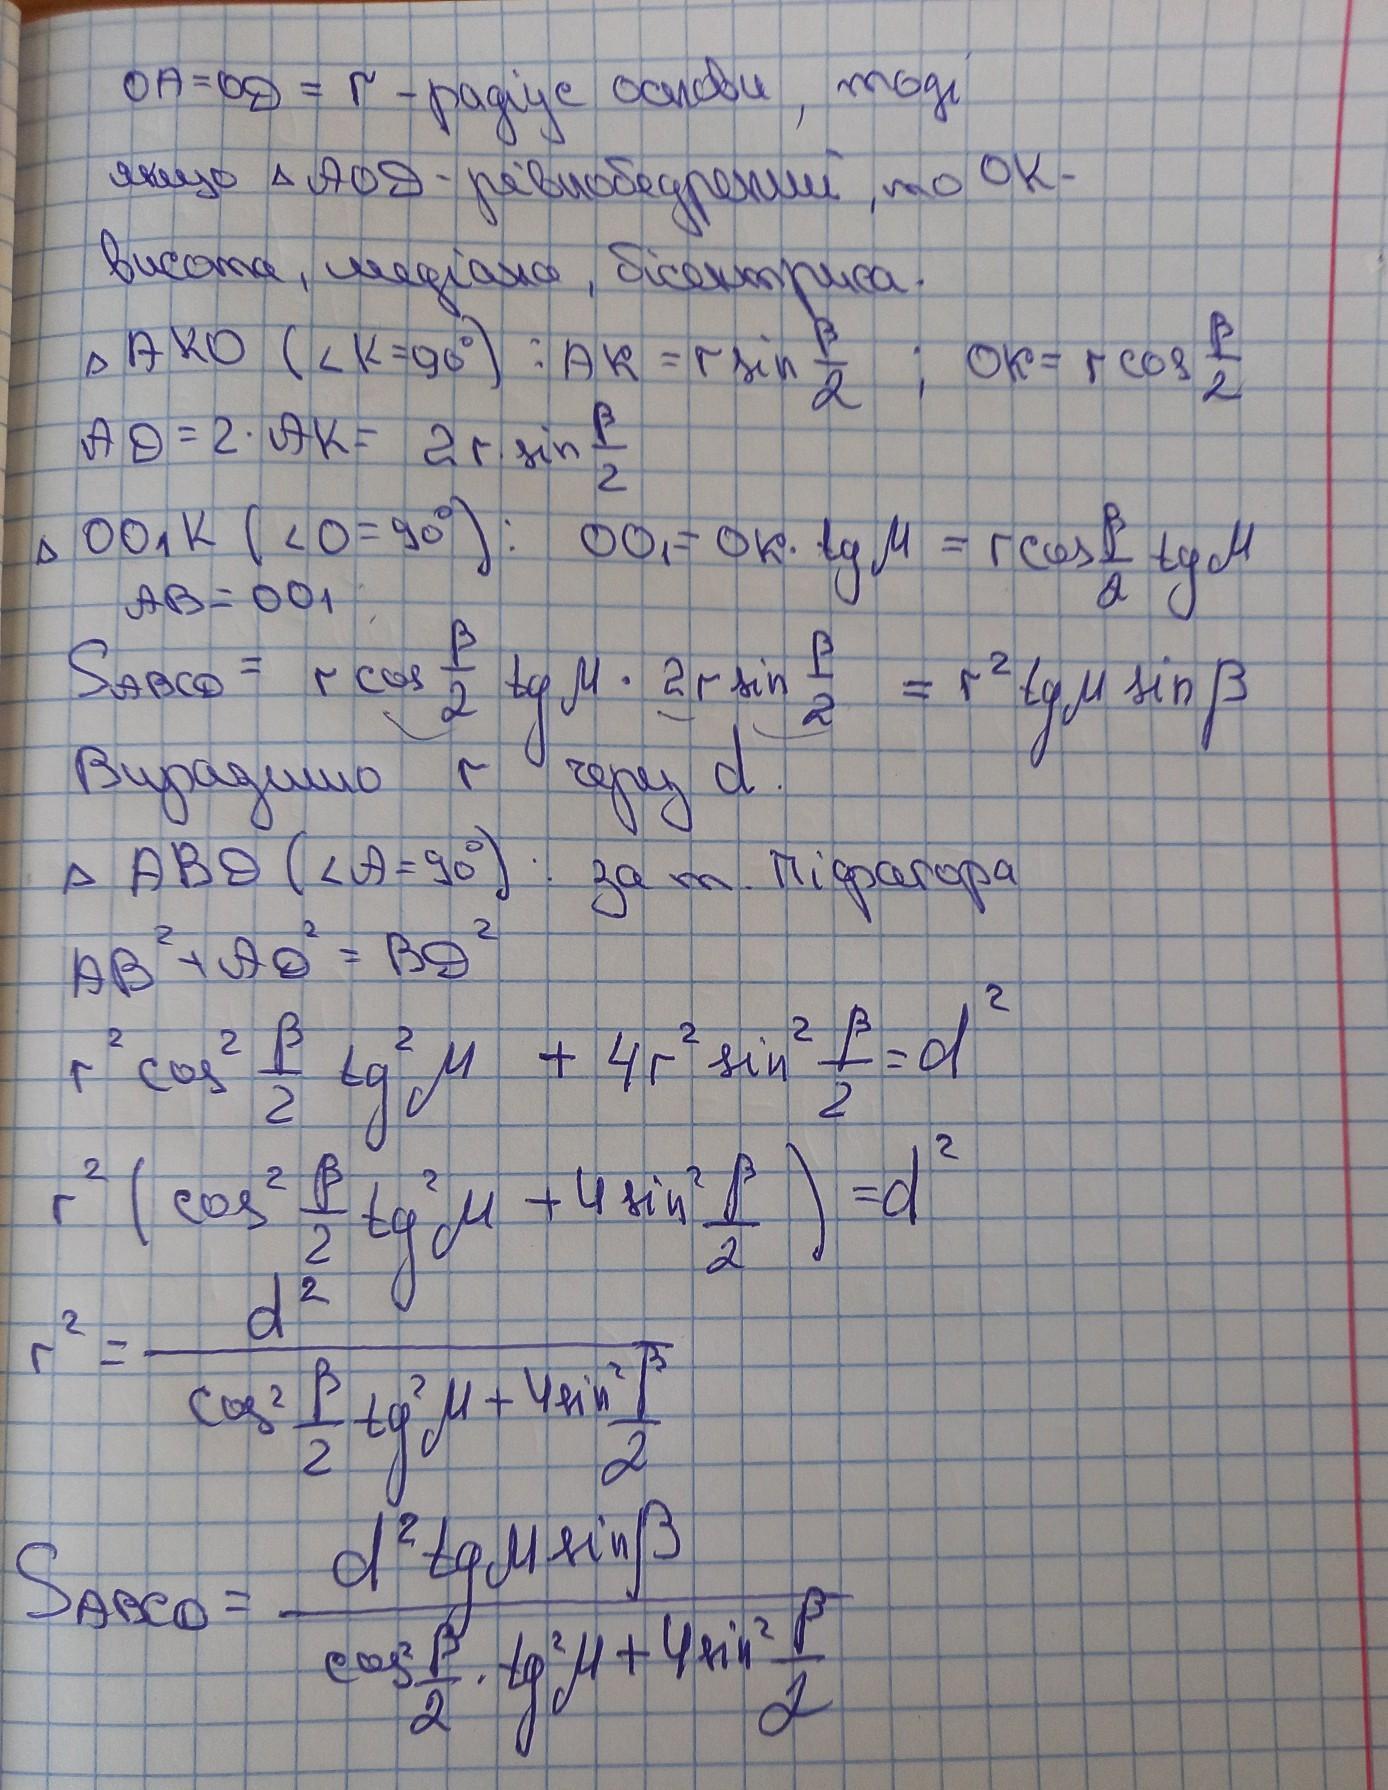 OA=OD = r - радіус основи, тоді
якщо △ AOD - рівнобедрений, то OK -
висота, медіана, бісектриса.
△ AKO (∠K=90°): AK = r sin β/2 ; OK = r cos β/2
AD = 2 · AK = 2r · sin β/2
△ OO₁K (∠O=90°): OO₁ = OK · tg μ = r cos β/2 tg μ
AB = OO₁
S_ABCD = r cos β/2 tg μ · 2r sin β/2 = r² tg μ sin β
Виразимо r через d.
△ ABD (∠A=90°): за т. Піфагора
AB² + AD² = BD²
r² cos² β/2 tg² μ + 4r² sin² β/2 = d²
r² ( cos² β/2 tg² μ + 4 sin² β/2 ) = d²
r² = d² / (cos² β/2 tg² μ + 4 sin² β/2)
S_ABCD = d² tg μ sin β / (cos² β/2 · tg² μ + 4 sin² β/2)